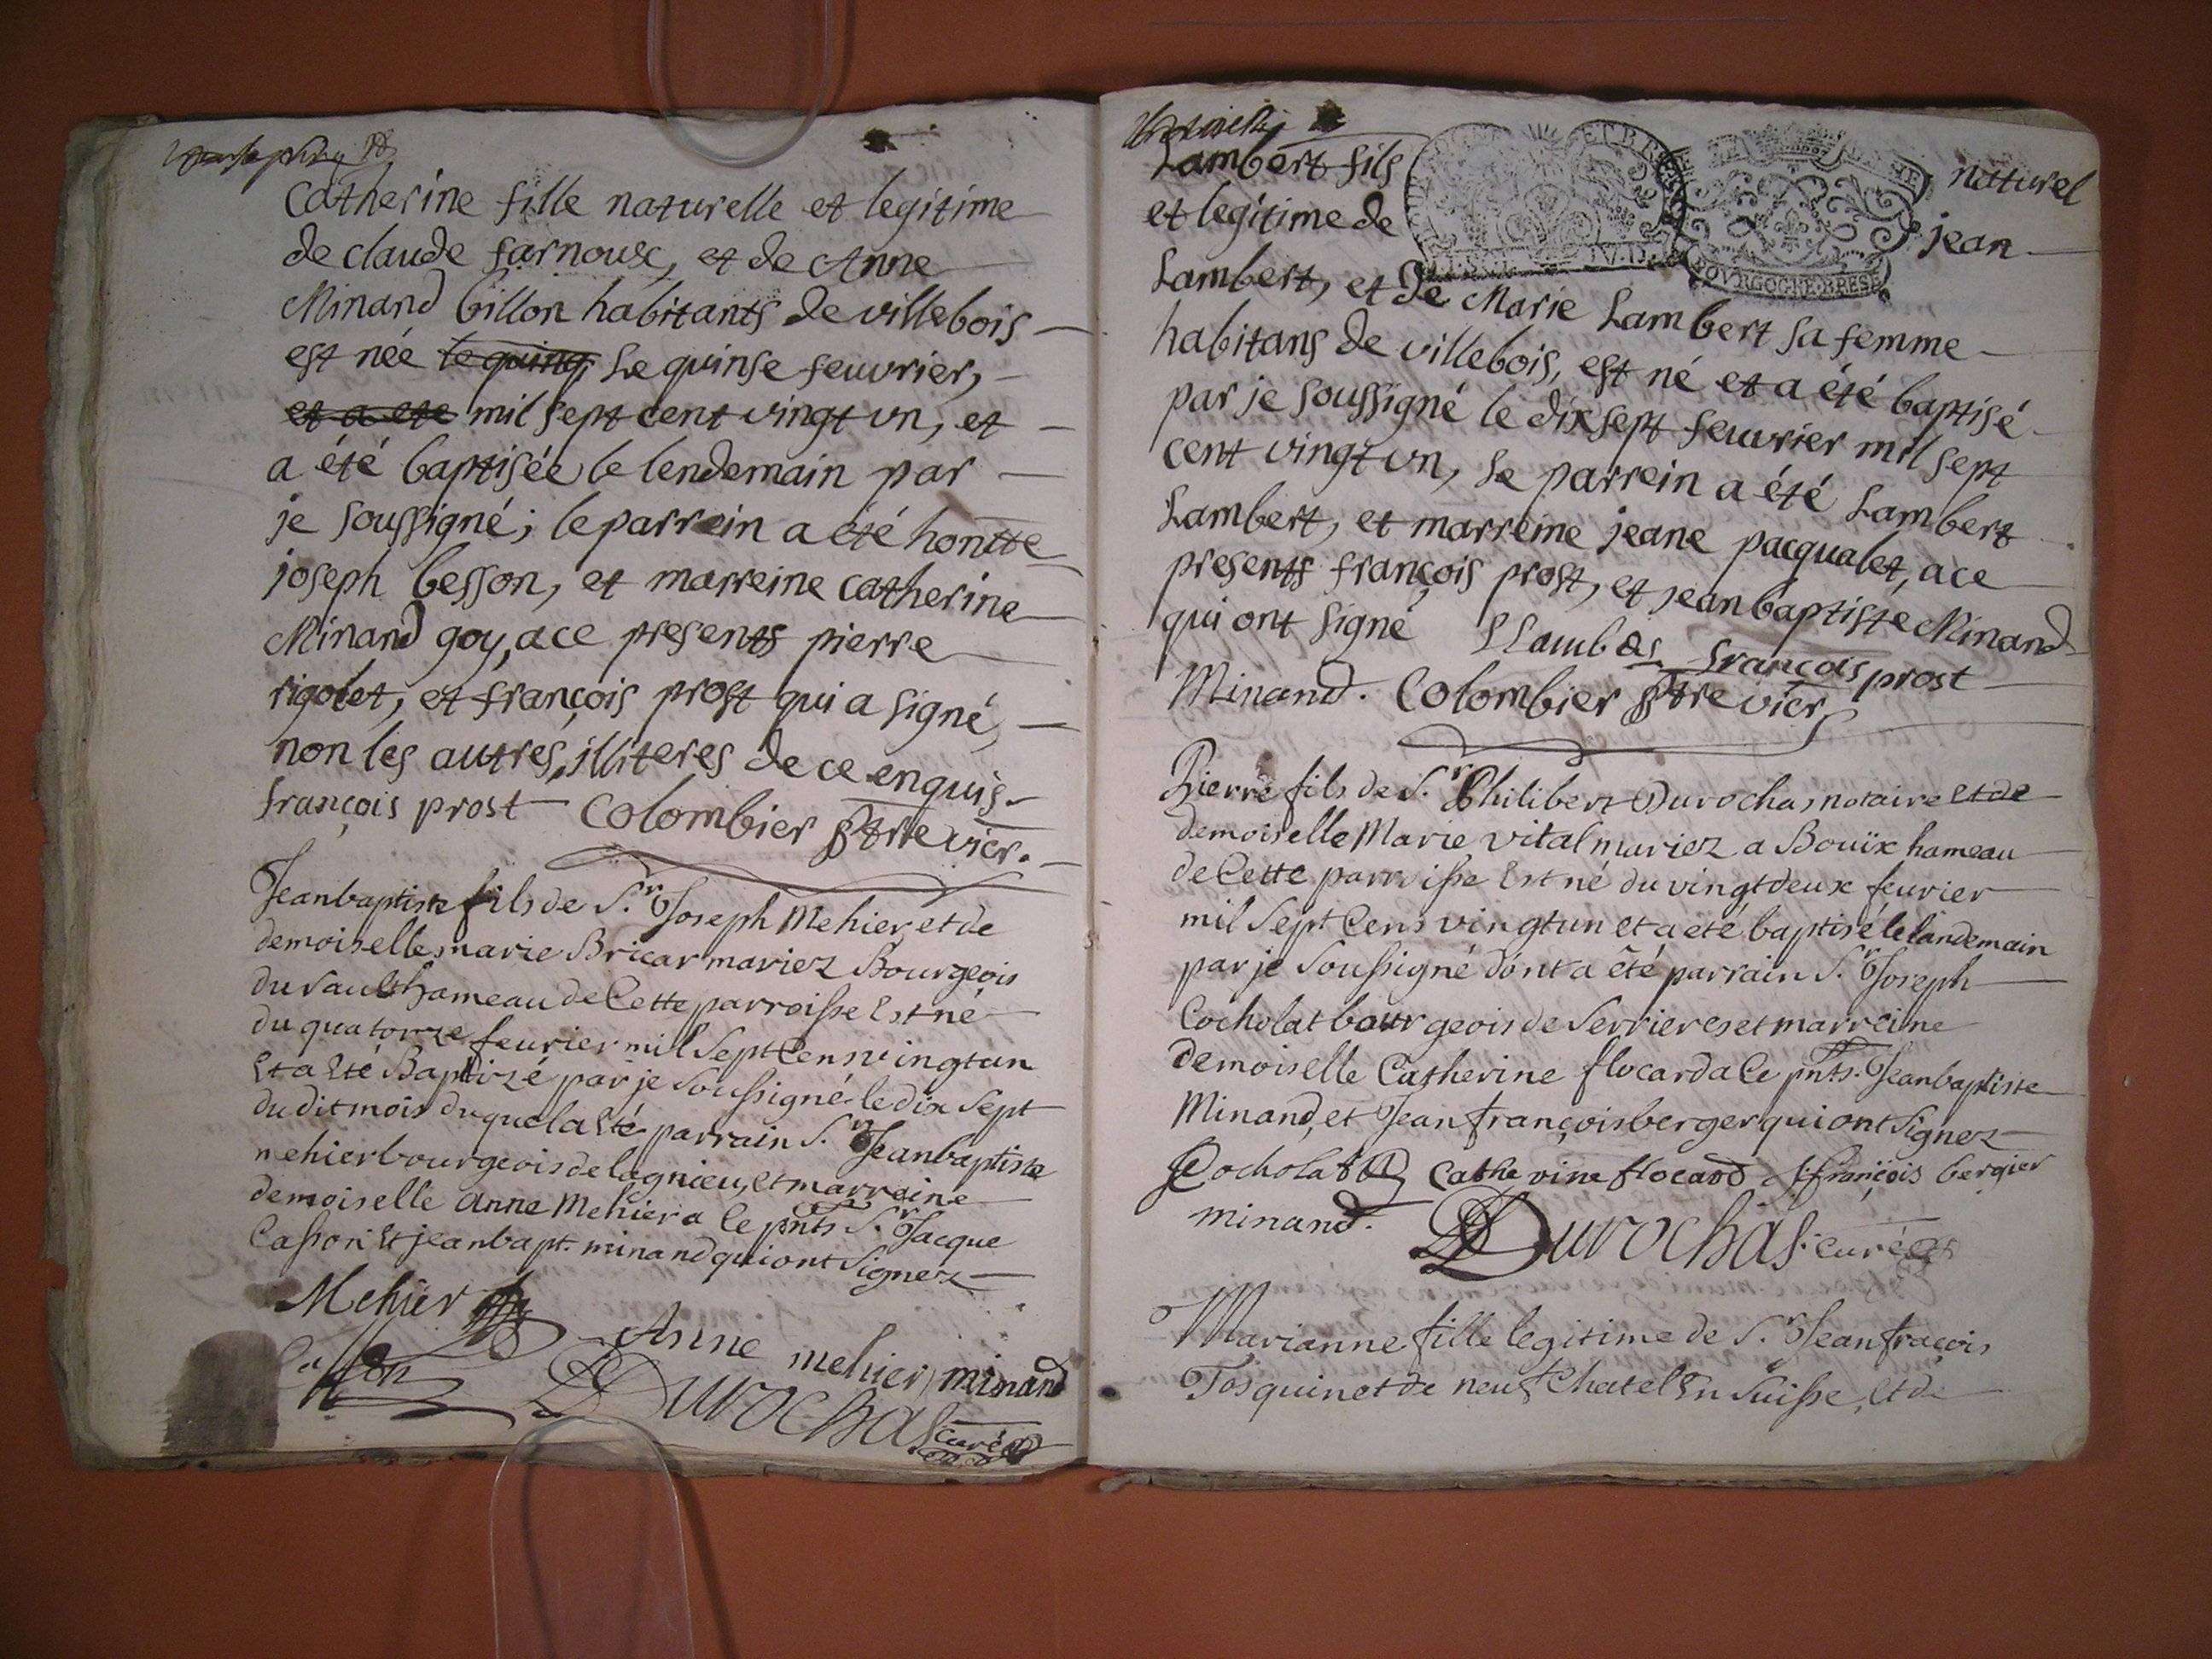 Catherine fille naturelle et legitime
de claude farnoux, et de Anne
Minand billon habitants de villebois
est née le quing le quinse feuvrier,
et a ete mil sept cent vingt vn, et
a été baptisée le lendemain par
je soussigné; le parrein a été honnte
joseph besson, et marreine catherine
Minand goy, a ce presents pierre
rigolet, et françois prost qui a signé,
non les autres, illiteres de ce enquis.
françois prost Colombier ptre vicr.
Jeanbaptiste fils de S.r Joseph Mehier et de
demoiselle marie Bricar mariez Bourgeois
du Sault hameau de Cette parroisse Est né
du quatorze feurier mil Sept Cens vingtun
Et a Eté Baptizé par je Soussigné le dix Sept
du dit mois duquel a Eté parrain S.r Jeanbaptiste
mehier bourgeois de lagnieu, et marreine
demoiselle Anne Mehier a Ce pnts S.r Jacque
Casson Et jeanbapt. minand qui ont Signez
Mehier
Anne mehier minand
Casson Durochas curé
Lambert fils naturel
et legitime de jean
Lambert, et de Marie Lambert sa femme
habitans de villebois, est né et a été baptisé
par je soussigné le dixsept feuvrier mil sept
cent vingt vn, le parrein a été Lambert
Lambert, et marreine jeane pacqualet, a ce
presents françois prost, et jean baptiste Minand
qui ont signé françois prost
Minand. Colombier ptre vicr
Pierre fils de S.r Philibert Durochas notaire et de
demoiselle Marie vital mariez a Bouïx hameau
de Cette parroisse Est né du vingtdeux feurier
mil Sept Cens vingtun et a eté baptisé le landemain
par je Soussigné dont a êté parrain S.r Joseph
Cocholat bourgeois de Serrieres et marreine
demoiselle Catherine flocard a Ce pnts. Jeanbaptiste
Minand, et Jean françois berger qui ont Signez
Cocholat Catherine flocard J françois bergier
minand. Durochas curé
Marianne fille legitime de S.r Jean fraçois
Tosquinet de neufchatel En Suisse, et de